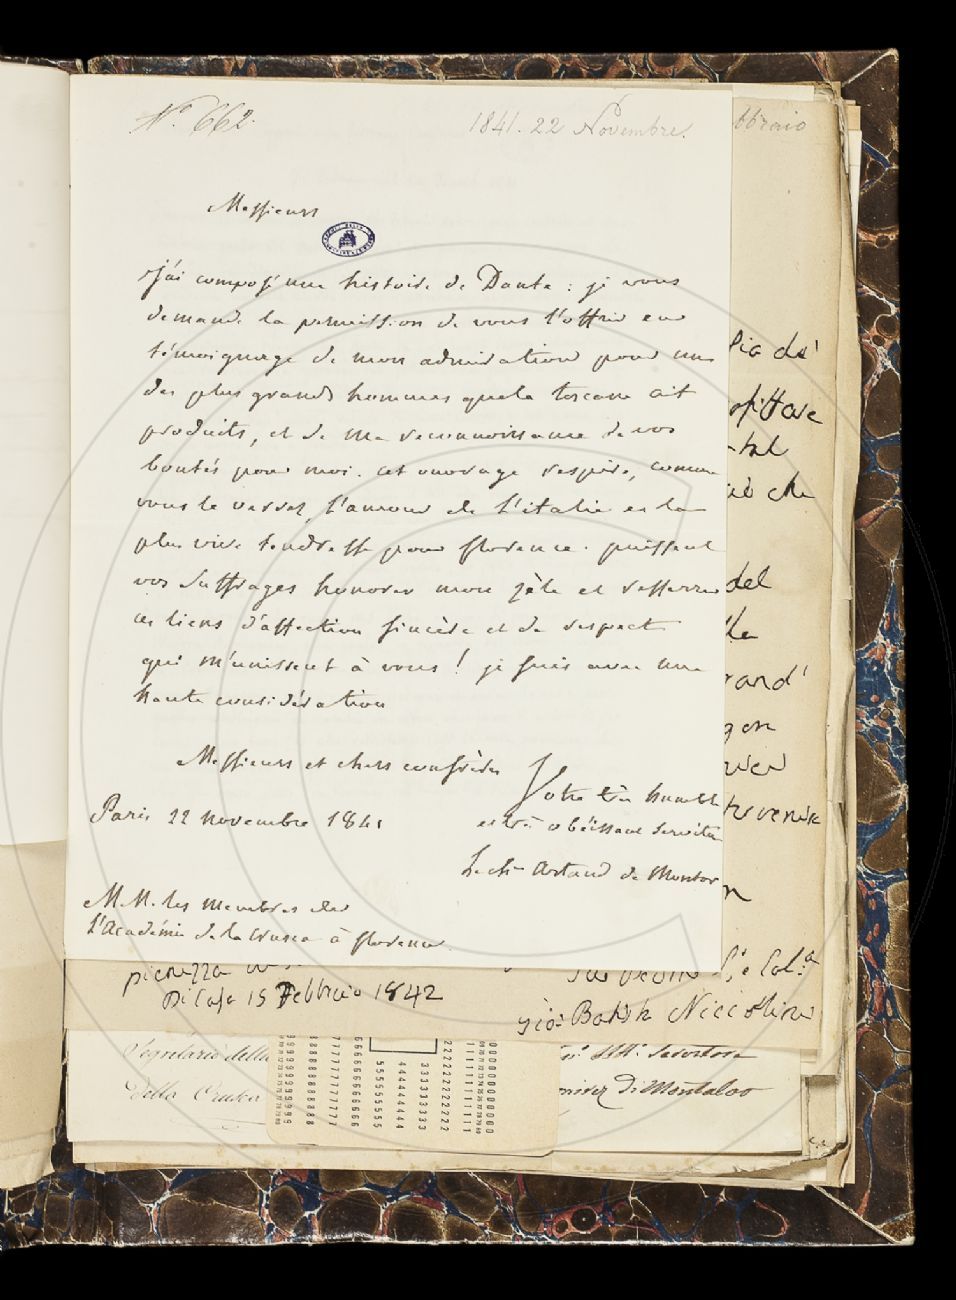 N.° 662.
1841. 22 Novembre.
Messieurs
j'ai composé une histoire de Dante : je vous
demande la permission de vous l'offrir en
témoignage de mon admiration pour un
des plus grands hommes que la toscane ait
produits, et de ma reconnoissance de vos
bontés pour moi. cet ouvrage respire, comme
vous le verrez, l'amour de l'italie et la
plus vive tendresse pour florence. puissent
vos suffrages honorer mon zèle et resserrer
ces liens d'affection sincère et de respect
qui m'unissent à vous ! je suis avec une
haute considération
Messieurs et chers confrères
Votre très humble
et très obéissant serviteur
Paris 22 novembre 1841
Le ch. Artaud de Montor
M.M. les membres de
l'Académie de la Crusca à florence.
Di Casa 15 Febbraio 1842
Gio: Batista Niccolini
Segretario della
Della Crusca
Servitore
di Montalvo
bbraio
del
rand'